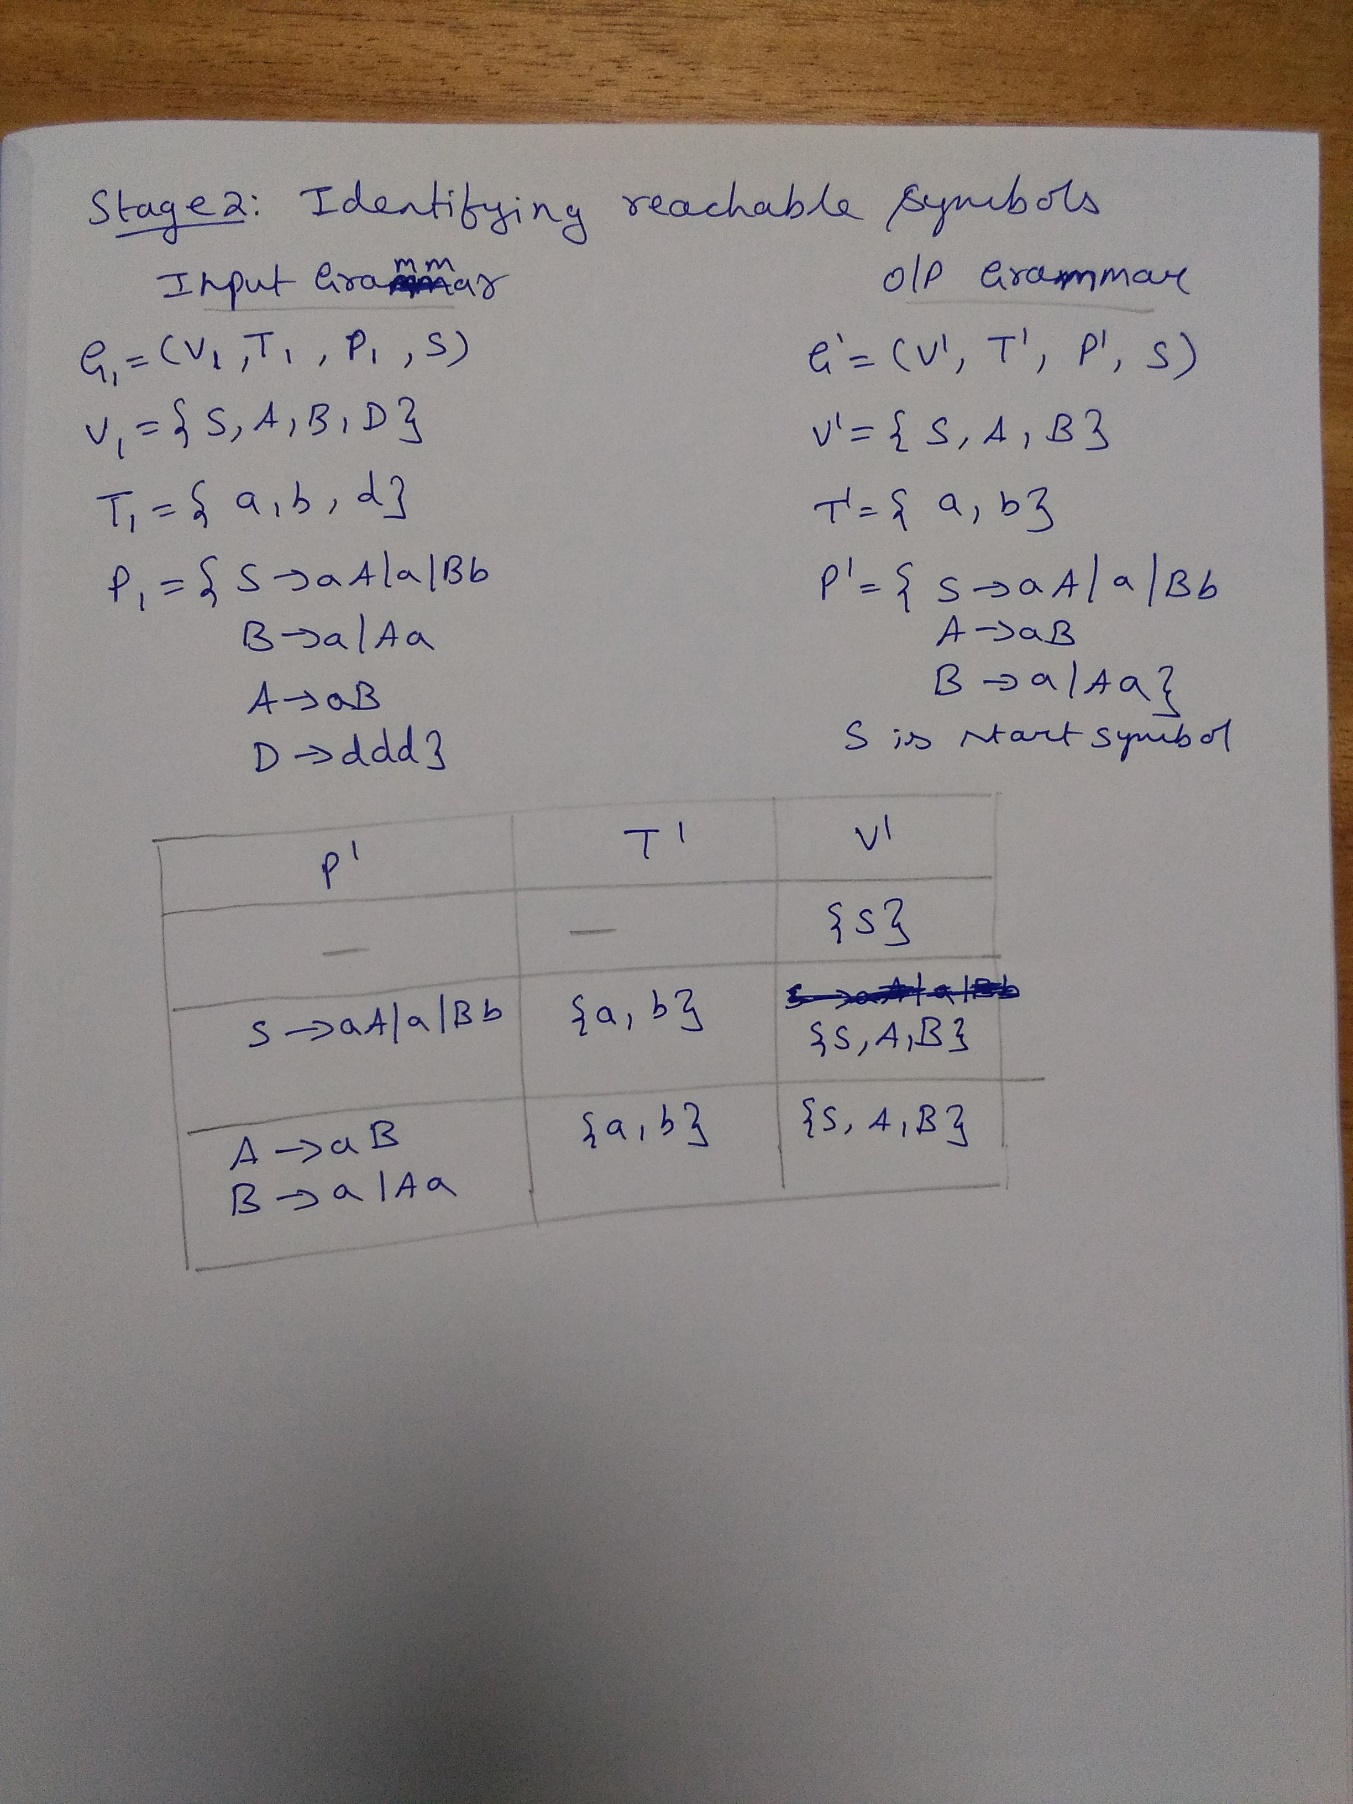 Stage2: Identifying reachable symbols
Input Grammar
G₁ = (V₁, T₁, P₁, S)
V₁ = {S, A, B, D}
T₁ = {a, b, d}
P₁ = {S → aA|a|Bb
B → a|Aa
A → aB
D → ddd}
O/P Grammar
G' = (V', T', P', S)
V' = {S, A, B}
T' = {a, b}
P' = {S → aA|a|Bb
A → aB
B → a|Aa}
S is start symbol
P' T' V'
— — {S}
S → aA|a|Bb {a, b} {S, A, B}
A → aB {a, b} {S, A, B}
B → a|Aa